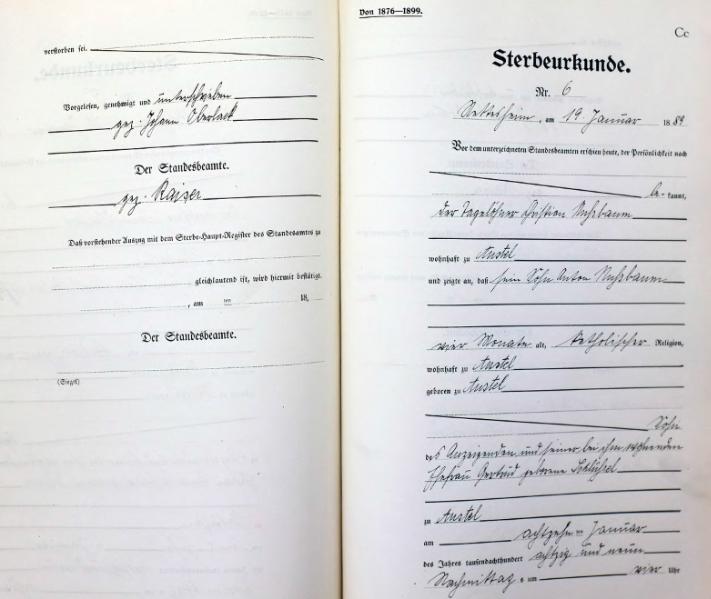 verstorben sei.
Vorgelesen, genehmigt und unterschrieben
gez. Johann Oberlack
Der Standesbeamte.
gez. Kaiser
Daß vorstehender Auszug mit dem Sterbe-Haupt-Register des Standesamts zu
gleichlautend ist, wird hiermit bestätigt.
, am ten 18
Der Standesbeamte.
(Siegel)
Von 1876—1899.
Cc
Sterbeurkunde.
Nr. 6
Nettesheim, am 19 Januar 1889
Vor dem unterzeichneten Standesbeamten erschien heute, der Persönlichkeit nach
be- kannt,
der Tagelöhner Christian Nußbaum
wohnhaft zu Anstel
und zeigte an, daß sein Sohn Anton Nußbaum
vier Monate alt, katholischer Religion,
wohnhaft zu Anstel
geboren zu Anstel
Sohn
des Anzeigenden und seiner bei ihm wohnenden
Ehefrau Gertrud geborene
zu Anstel
am achtzehn Januar
des Jahres tausendachthundert achtzig und neun
Nachmittag s um vier Uhr